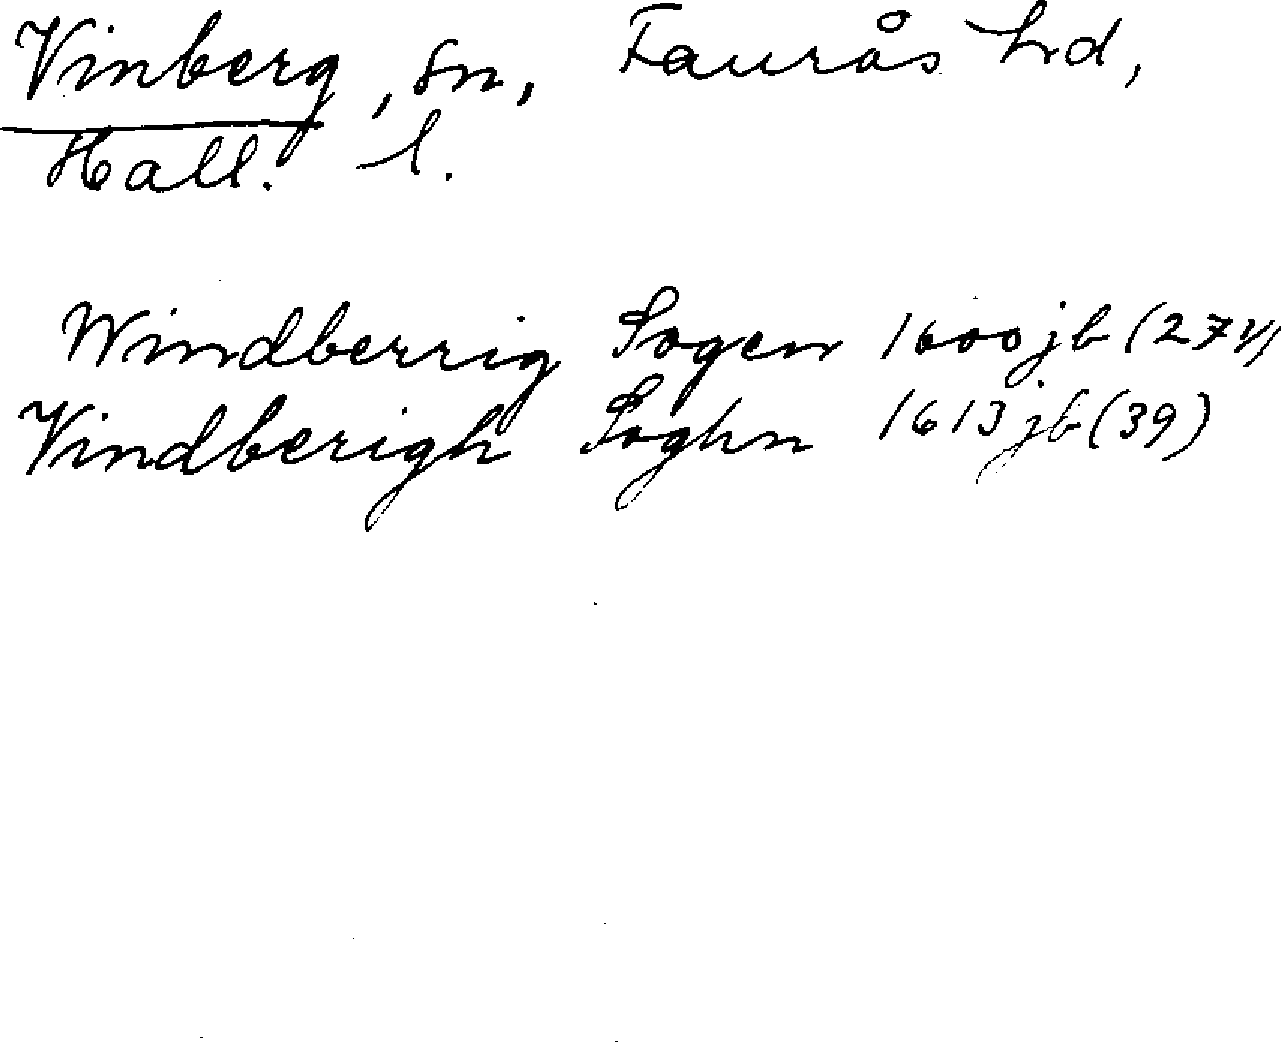 Vinberg, sn, Faurås hd,
Hall. l.
Windberrig Sogen 1600 jb (274)
Vindberigh Soghn 1613 jb (39)